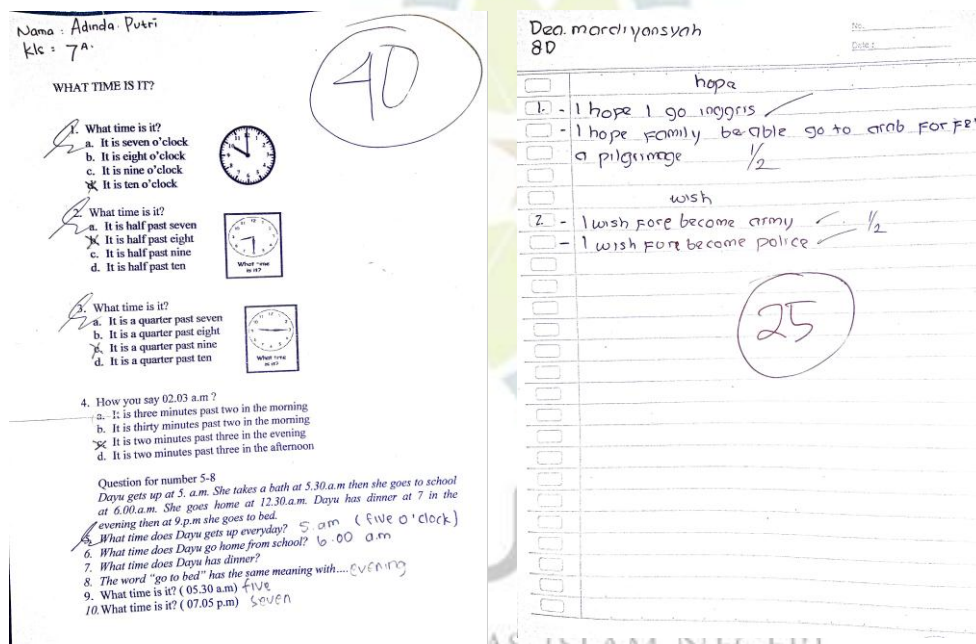 Nama : Adinda Putri
Kls : 7A.
40
WHAT TIME IS IT?
1. What time is it?
a. It is seven o'clock
b. It is eight o'clock
c. It is nine o'clock
d. It is ten o'clock
2. What time is it?
a. It is half past seven
b. It is half past eight
c. It is half past nine
d. It is half past ten
What time
is it?
3. What time is it?
a. It is a quarter past seven
b. It is a quarter past eight
c. It is a quarter past nine
d. It is a quarter past ten
What time
is it?
4. How you say 02.03 a.m ?
a. It is three minutes past two in the morning
b. It is thirty minutes past two in the morning
c. It is two minutes past three in the evening
d. It is two minutes past three in the afternoon
Question for number 5-8
Dayu gets up at 5. a.m. She takes a bath at 5.30.a.m then she goes to school
at 6.00.a.m. She goes home at 12.30.a.m. Dayu has dinner at 7 in the
evening then at 9.p.m she goes to bed.
5. What time does Dayu gets up everyday? 5.am (five o'clock)
6. What time does Dayu go home from school? 6.00 a.m
7. What time does Dayu has dinner?
8. The word "go to bed" has the same meaning with.... Evening
9. What time is it? ( 05.30 a.m) five
10. What time is it? ( 07.05 p.m) Seven
Dea. mardiyansyah
8D
No.
Date :
hope
1. - I hope I go inggris
- I hope family be able go to arab For
a pilgrimage 1/2
wish
2. - I wish Fore become army 1/2
- I wish Fore become police
25